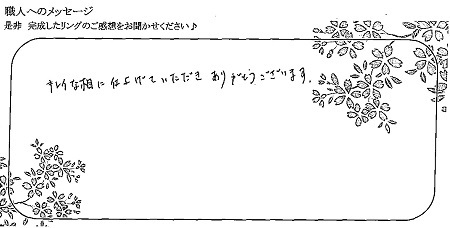 職人へのメッセージ
是非 完成したリングのご感想をお聞かせください♪
キレイな相に仕上げていただき ありがとうございます。